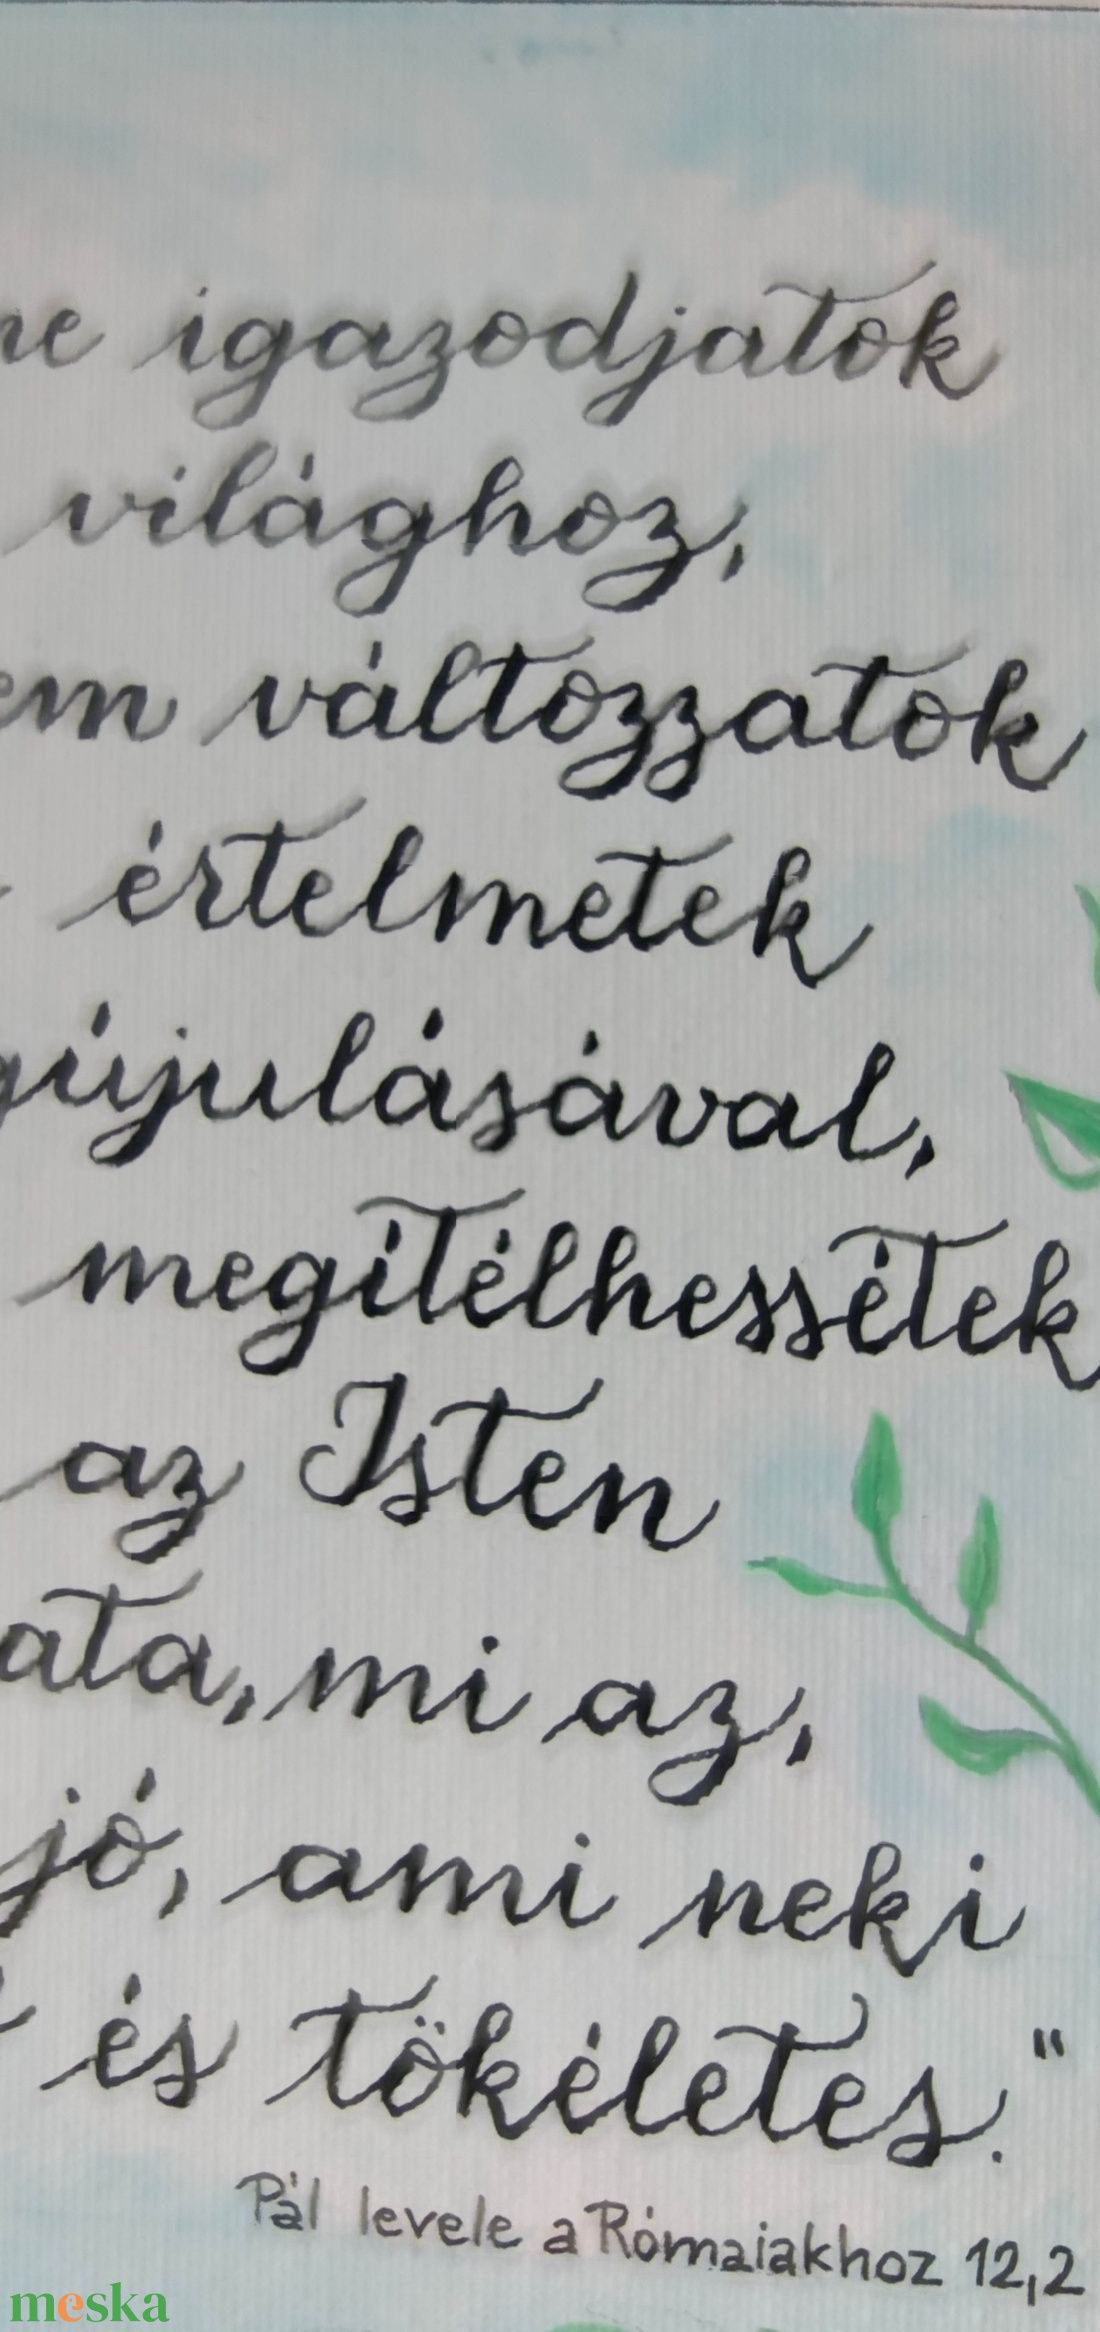 ne igazodjatok
világhoz,
em változzatok
értelmetek
gújulásával,
megítélhessétek
az Isten
ata, mi az,
jó, ami neki
és tökéletes."
Pál levele a Rómaiakhoz 12,2
meska